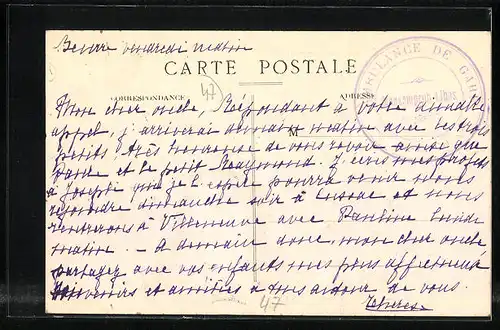 vendredi matin
CARTE POSTALE
CORRESPONDANCE
ADRESSE
AMBULANCE DE
47
Mon cher oncle, Répondant à votre aimable
appel, j'arriverai demain matin avec les trois
petits, très heureuse de vous revoir ainsi que
et le petit Raymond. J'écris mes projets
à Joseph que je l'espère pourra venir nous
rejoindre dimanche soir à et nous
rentrerons à Villeneuve avec Pauline lundi
matin. - A demain donc, mon cher oncle
partagez avec vos enfants mes plus affectueux
souvenirs et amitiés à tous autour de vous.
47